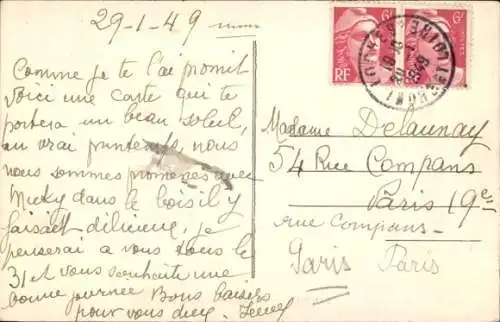 29-1-49
Comme je te l'ai promit
voici une carte qui te
portera un beau soleil,
un vrai printemps, nous
nous sommes promenés avec
Micky dans le bois il y
faisait délicieux, je
penserai a vous tous le
31 et vous souhaite une
bonne journée Bons Baisers
pour vous deux.
Madame Delaunay
54 Rue Compans
Paris 19e
rue Compans
Paris Paris
6F 6F
RF
POSTES
1949